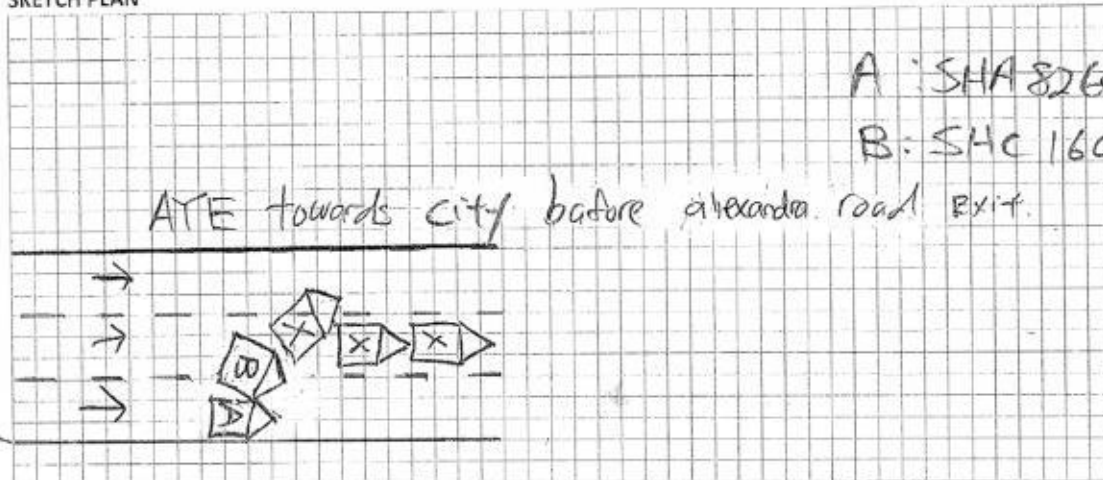 SKETCH PLAN
A : SHA 826
B : SHC 160
AYE towards city before alexandra road Exit.
X
X X
B
A